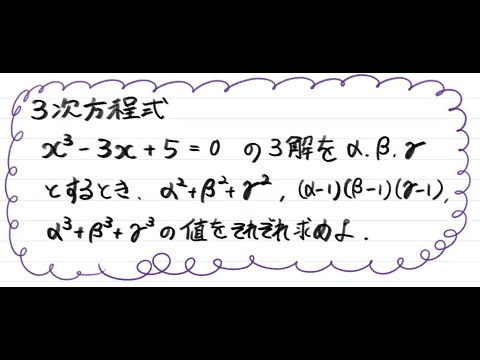 3次方程式
x³-3x+5=0 の3解を α.β.γ
とするとき、α²+β²+γ²,(α-1)(β-1)(γ-1),
α³+β³+γ³の値をそれぞれ求めよ.